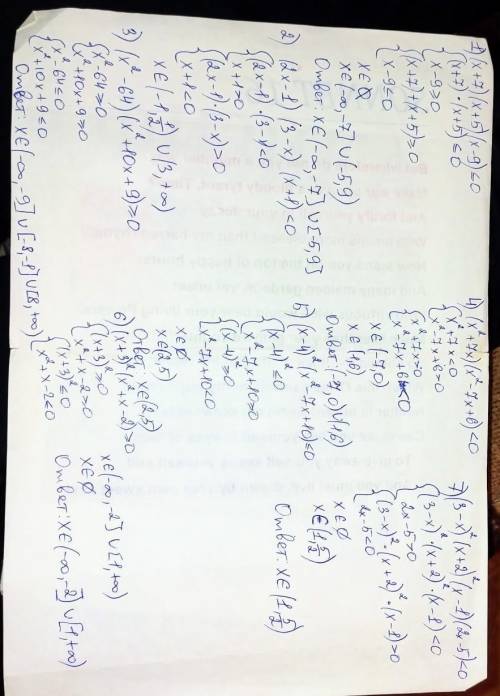 1) (x+7)(x+5)(x-9)≤0
{(x+7)·(x+5)≤0
{x-9≥0
{(x+7)·(x+5)≥0
{x-9≤0
x∈∅
x∈(-∞,-7]∪[-5,9]
Ответ: x∈(-∞,-7]∪[-5,9]
2) (2x-1)(3-x)(x+1)<0
{(2x-1)·(3-x)<0
{x+1>0
{(2x-1)·(3-x)>0
{x+1<0
x∈(-1,1/2)∪(3,+∞)
3) (x²-64)(x²+10x+9)≥0
{x²-64≥0
{x²+10x+9≥0
{x²-64≤0
{x²+10x+9≤0
Ответ: x∈(-∞,-9]∪[-8,-1]∪[8,+∞)
4) (x²+7x)(x²-7x+6)<0
{x²+7x<0
{x²-7x+6>0
{x²+7x>0
{x²-7x+6<0
x∈(-7,0)
x∈(1,6)
Ответ: (-7,0)∪(1,6)
5) (x-4)²(x²-7x+10)≤0
{(x-4)²≤0
{x²-7x+10≥0
{(x-4)²≥0
{x²-7x+10≤0
x∈∅
x∈(2,5)
Ответ: x∈(2,5)
6) (x+3)²(x²+x-2)≥0
{(x+3)²≥0
{x²+x-2≥0
{(x+3)²≤0
{x²+x-2≤0
x∈(-∞,-2]∪[1,+∞)
x∈∅
Ответ: x∈(-∞,-2]∪[1,+∞)
7) (3-x)²(x+2)²(x-1)(2x-5)<0
{(3-x)²·(x+2)²·(x-1)<0
{2x-5>0
{(3-x)²·(x+2)²·(x-1)>0
{2x-5<0
x∈∅
x∈(1,5/2)
Ответ: x∈(1,5/2)